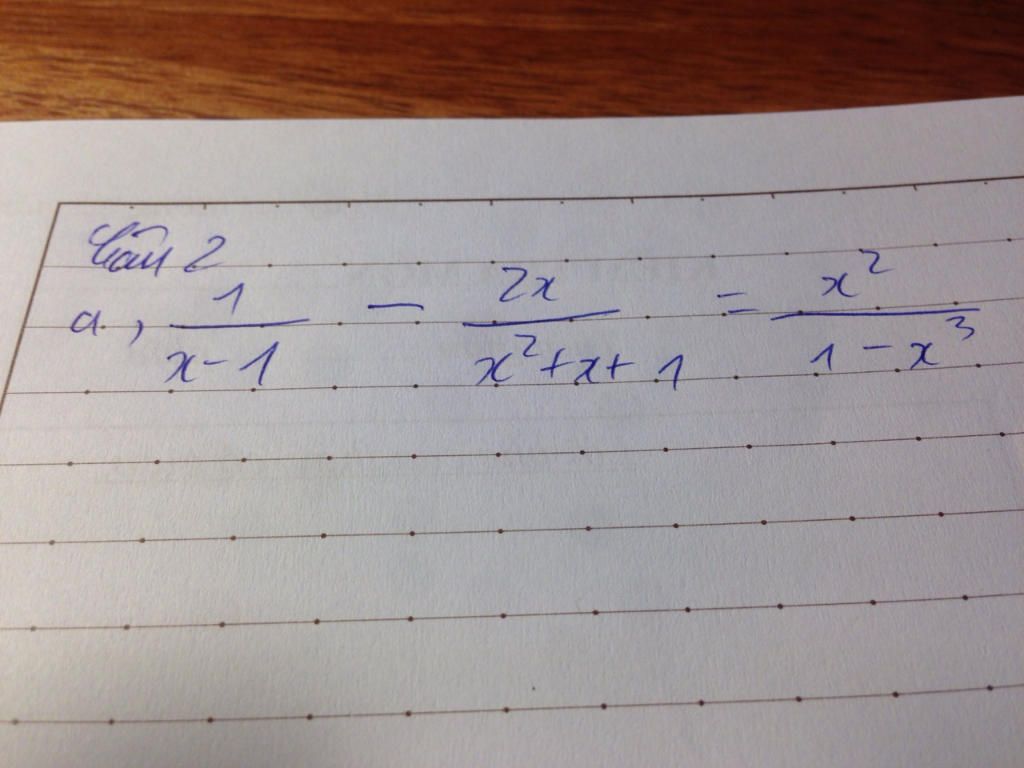 Câu 2
a, 1/(x-1) - 2x/(x²+x+1) = x²/(1-x³)